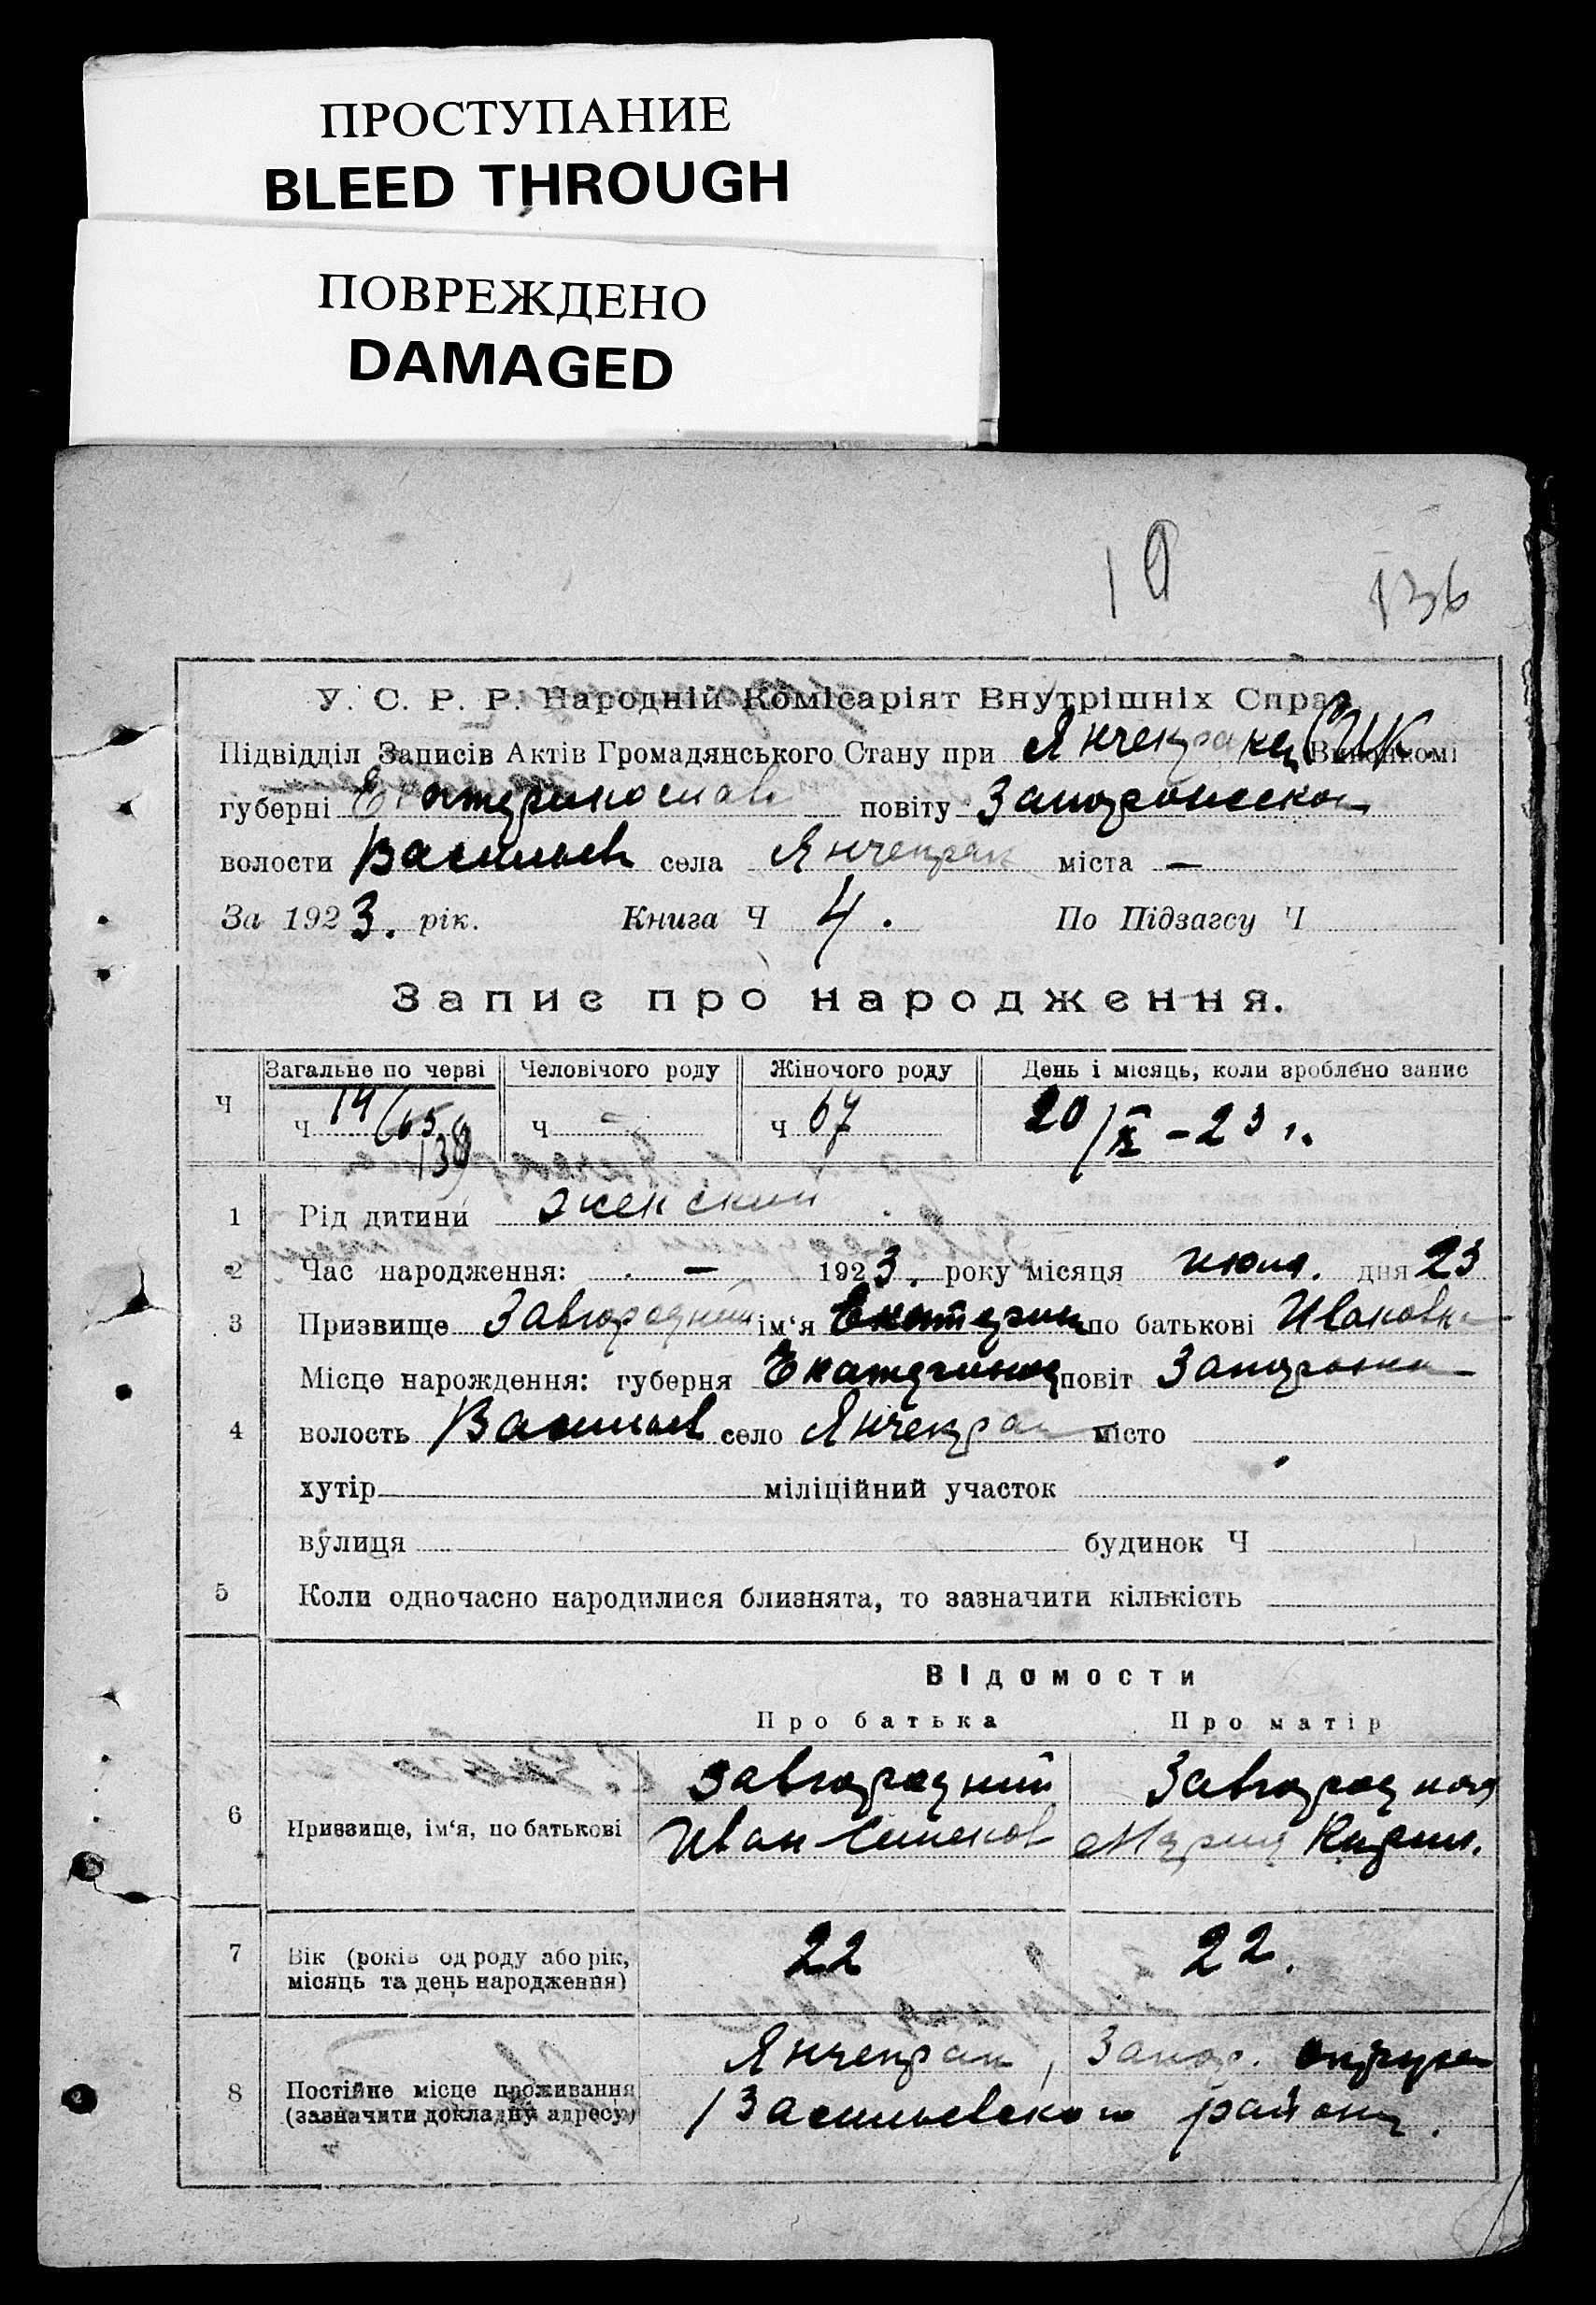 ПРОСТУПАНИЕ
BLEED THROUGH
ПОВРЕЖДЕНО
DAMAGED
19 136
У. С. Р. Р. Народній Комісаріят Внутрішніх Справ
Підвідділ Записів Актів Громадянського Стану при Янчекрак Виконкомі
губерні Екатеринослав повіту Запорожско
волости Васильев села Янчекрак міста —
За 1923. рік. Книга Ч 4. По Підзагсу Ч
Запис про народження.
Загальне по черві Человічого роду Жіночого роду День і місяць, коли зроблено запис
Ч Ч 14 Ч — Ч 67 20/IX – 23 г.
138
1 Рід дитини женский
2 Час народження: — 1923. року місяця июля. дня 23
3 Призвище Завгородний ім‘я Екатерин по батькові Ивановна
Місце нарождення: губерня Екатеринос повіт Запорожск
4 волость Васильев село Янчекрак місто
хутір міліційний участок
вулиця будинок Ч
5 Коли одночасно народилися близнята, то зазначити кількість
Відомости
Про батька Про матір
Завгородний Завгородная
6 Призвище, ім‘я, по батькові Иван Семенов Мария Кирил.
7 Вік (років од роду або рік, 22 22.
місяць та день народження)
Янчекрак, Запор. округа
8 Постійне місце проживання
(зазначити докладну адресу) Васильевского района.